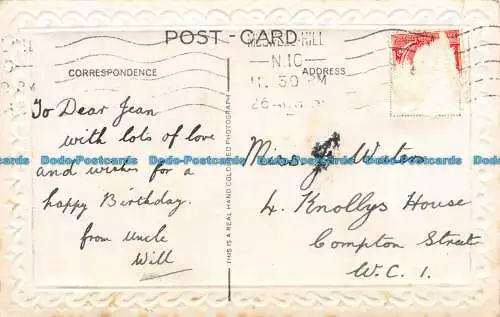 POST - CARD
CORRESPONDENCE
ADDRESS
MUSWELL HILL
N.10
11. 30 PM
26
To Dear Jean
with lots of love
and wishes for a
happy Birthday.
from Uncle
Will
THIS IS A REAL HAND COLOURED PHOTOGRAPH
Miss J Waters
4 Knollys House
Compton Street
W.C.1.
Dodo-Postcards Dodo-Postcards Dodo-Postcards Dodo-Postcards Dodo-Postcards